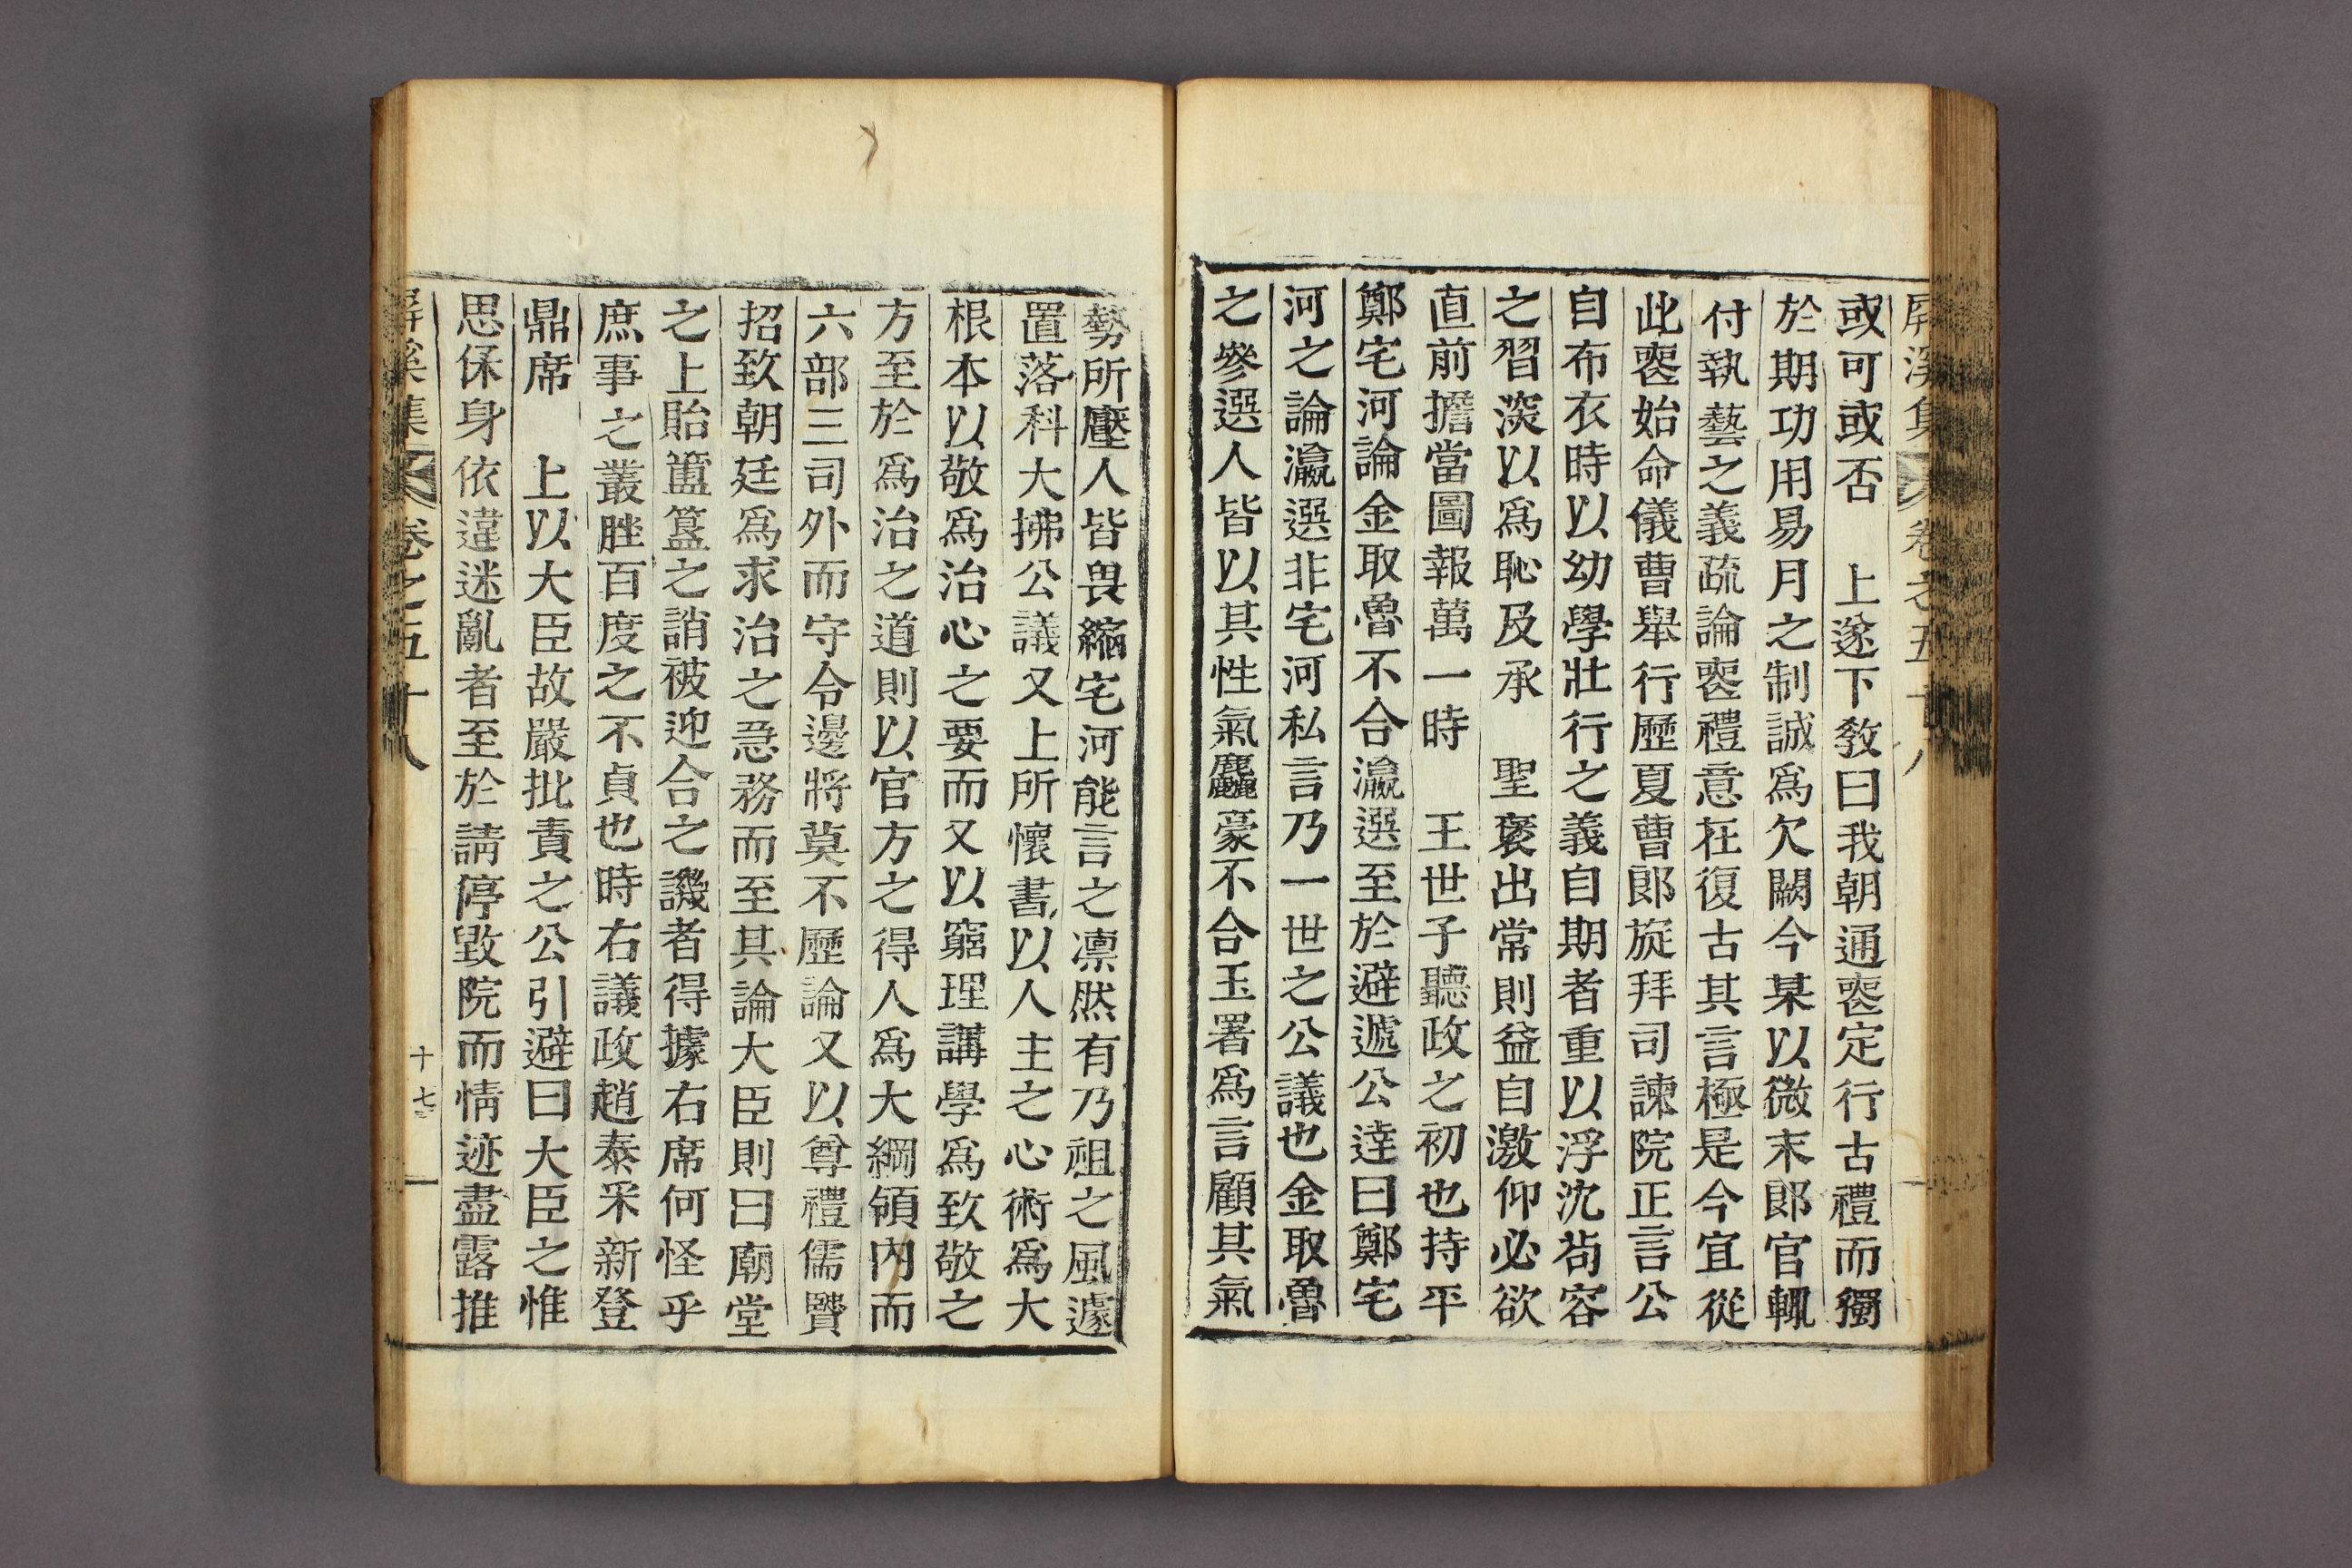 屏溪集 卷之五十八
或可或否 上遂下敎曰我朝通喪定行古禮而獨
於期功用易月之制誠爲欠闕今某以微末郞官輒
付執藝之義疏論喪禮意在復古其言極是今宜從
此喪始命儀曹擧行歷夏曹郞旋拜司諫院正言公
自布衣時以幼學壯行之義自期者重以浮沈苟容
之習深以爲恥及承 聖褒出常則益自激仰必欲
直前擔當圖報萬一時 王世子聽政之初也持平
鄭宅河論金取魯不合瀛選至於避遞公達曰鄭宅
河之論瀛選非宅河私言乃一世之公議也金取魯
之參選人皆以其性氣麤豪不合玉署爲言顧其氣
勢所壓人皆畏縮宅河能言之凛然有乃祖之風遽
置落科大拂公議又上所懷書以人主之心術爲大
根本以敬爲治心之要而又以窮理講學爲致敬之
方至於爲治之道則以官方之得人爲大綱領內而
六部三司外而守令邊將莫不歷論又以尊禮儒賢
招致朝廷爲求治之急務而至其論大臣則曰廟堂
之上貽簠簋之誚被迎合之譏者得據右席何怪乎
庶事之叢脞百度之不貞也時右議政趙泰采新登
鼎席 上以大臣故嚴批責之公引避曰大臣之惟
思保身依違迷亂者至於請停毀院而情迹盡露推
屏溪集 卷之五十八 十七